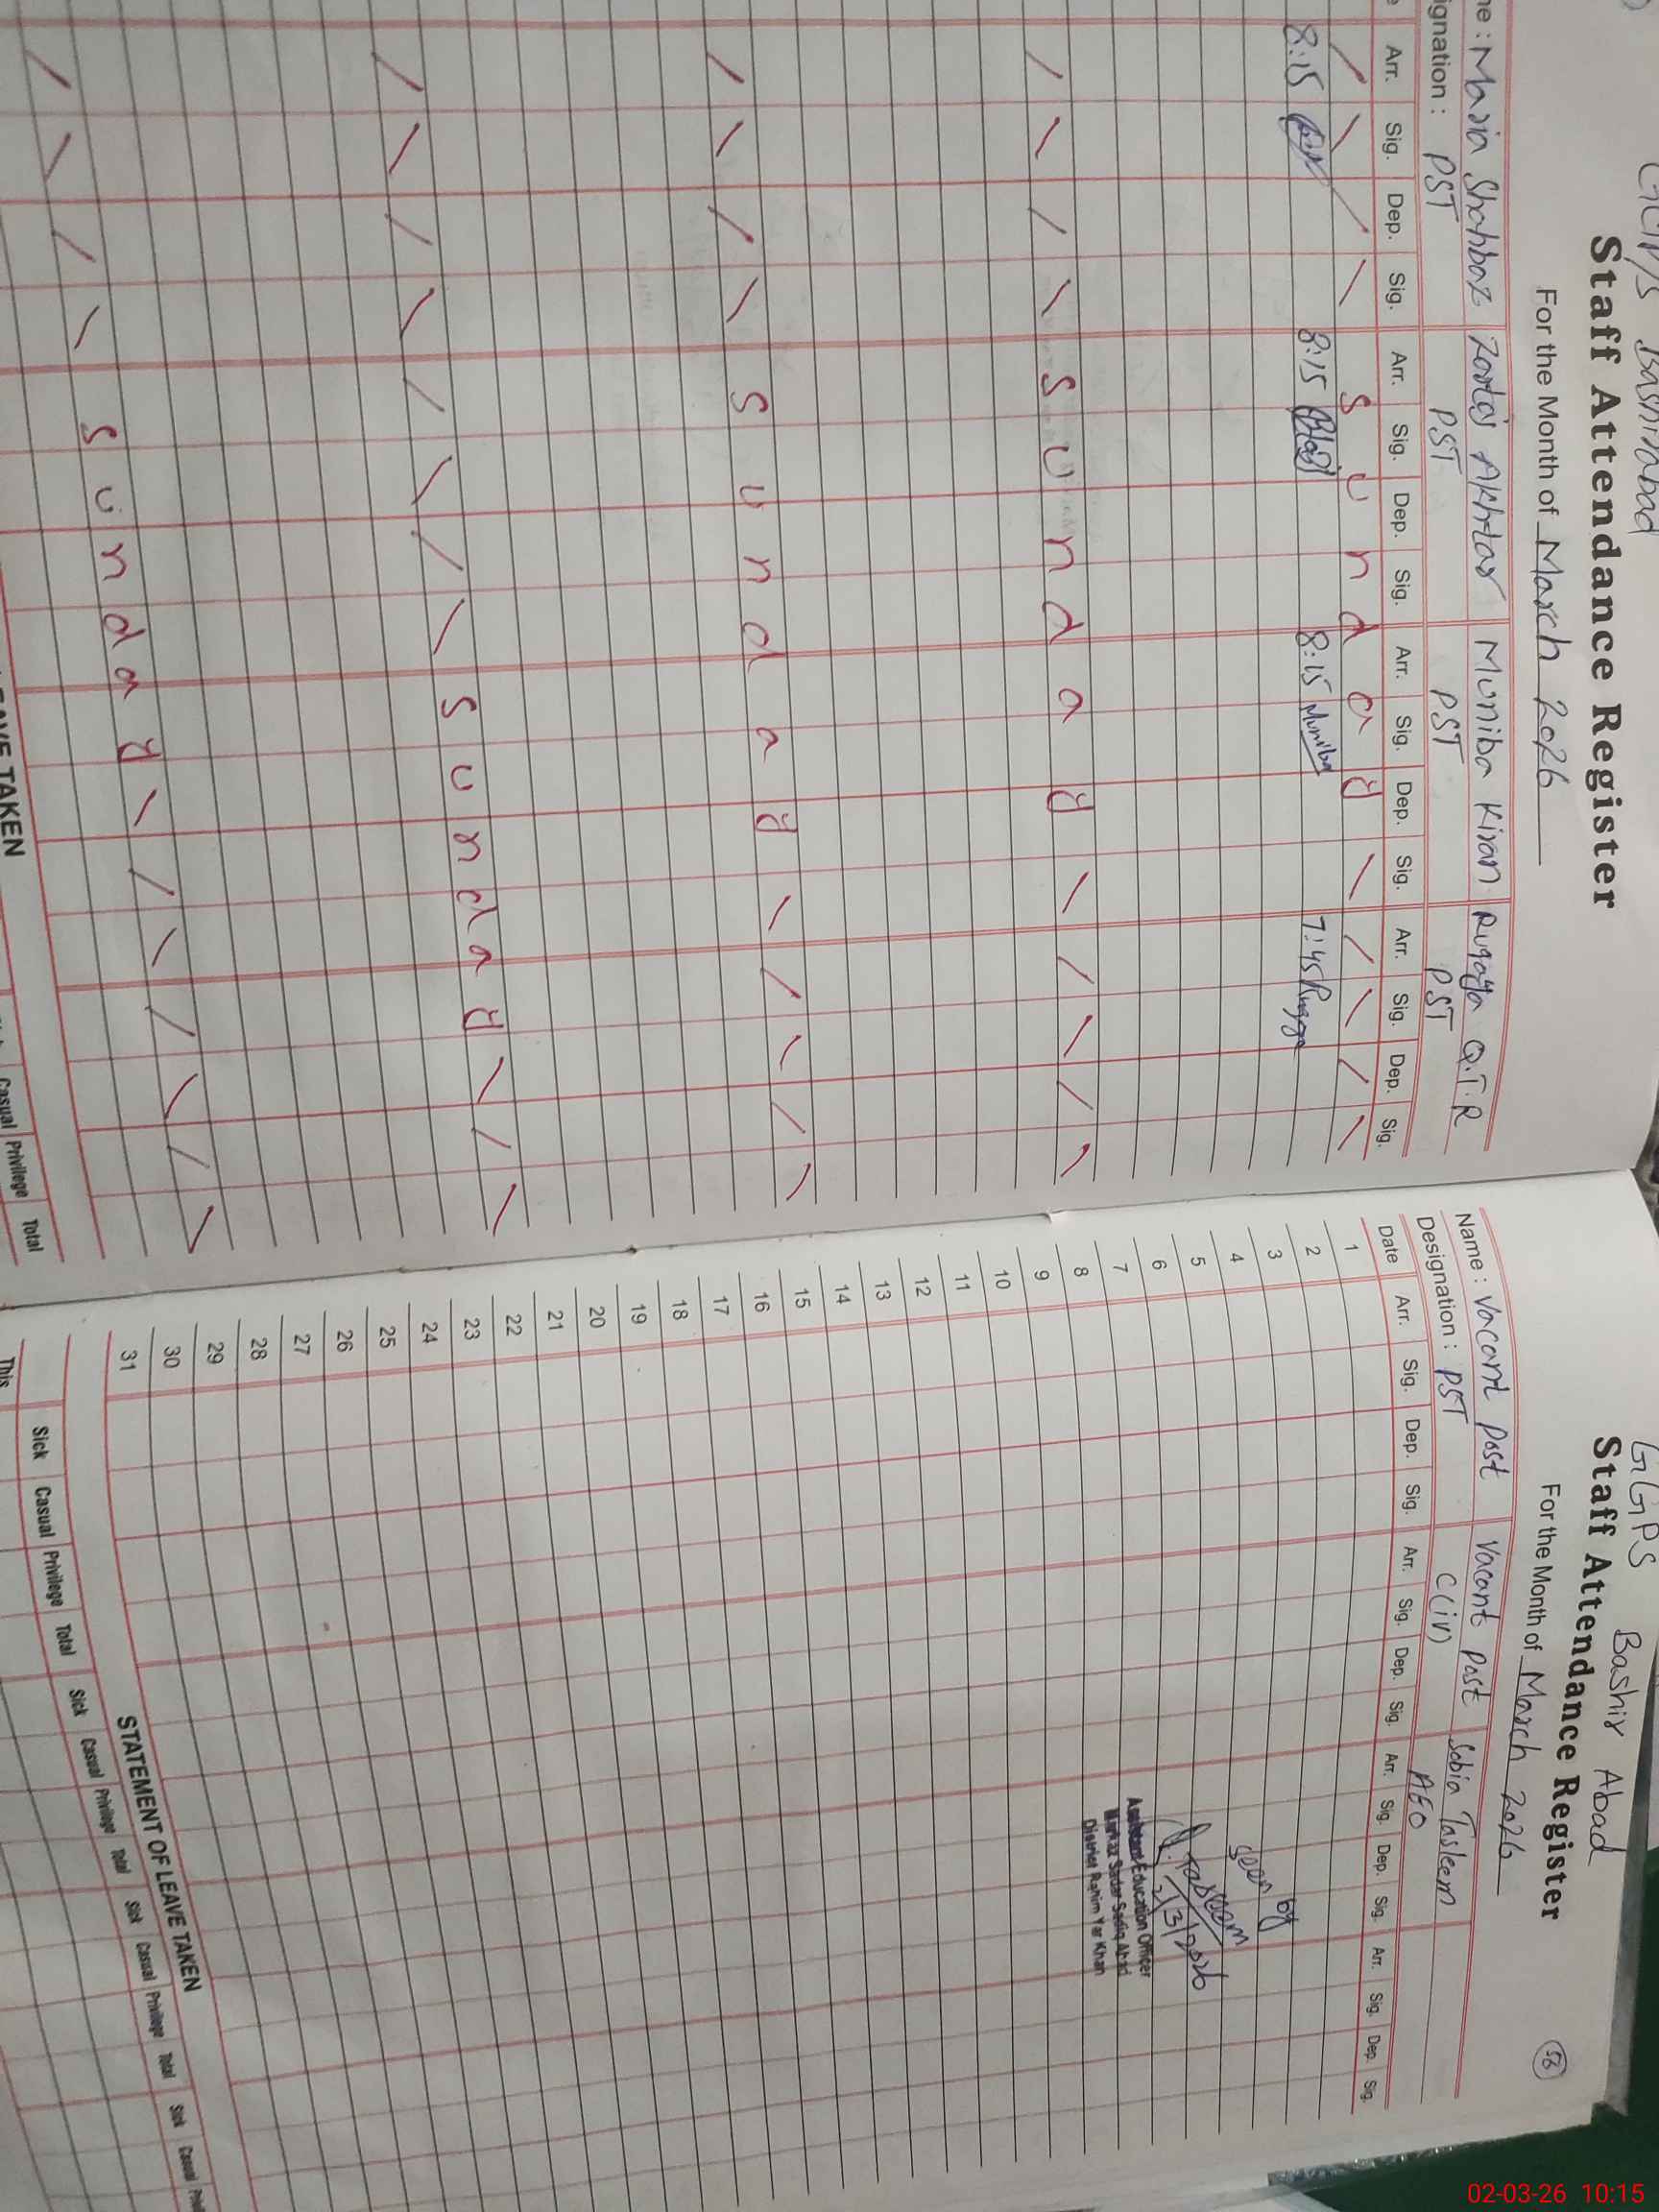 Bashirabad
Staff Attendance Register
For the Month of March 2026
Maria Shahbaz Zartaj Akhtar Muniba Kiran Ruqayya Q.T.R
PST PST PST PST
Arr. Sig. Dep. Sig. Arr. Sig. Dep. Sig. Arr. Sig. Dep. Sig. Arr. Sig. Dep. Sig.
Sunday
8:15 8:15 8:15 Muniba 7:45 Ruqayya
Sunday
Sunday
Sunday
Sunday
LEAVE TAKEN
Casual Privilege Total
GGPS Bashir Abad
56
Staff Attendance Register
For the Month of March 2026
Name : Vacant Post Vacant Post Sobia Tasleem
Designation : PST C(iv) AEO
Date Arr. Sig. Dep. Sig. Arr. Sig. Dep. Sig. Arr. Sig. Dep. Sig. Arr. Sig. Dep. Sig.
1
2
3
4
5
6
7
8
9
10
11
12
13
14
15
16
17
18
19
20
21
22
23
24
25
26
27
28
29
30
31
Seen by
2/3/2026
Assistant Education Officer
Markaz Sadar Sadiq Abad
District Rahim Yar Khan
STATEMENT OF LEAVE TAKEN
Sick Casual Privilege Total Sick Casual Privilege Total Sick Casual Privilege Total Sick Casual
This
02-03-26 10:15